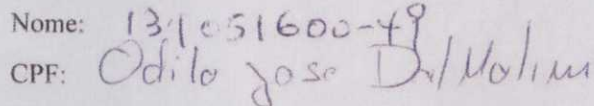 Nome: 131051600-49
CPF: Odilo Jose Dal Molin